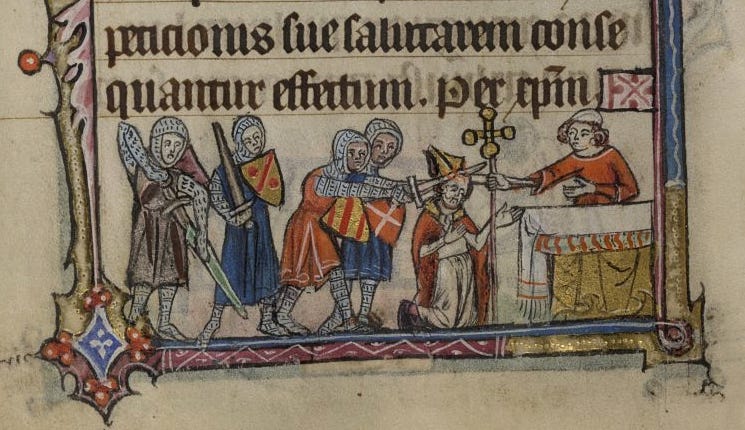 peticionis sue salutarem conse
quantur effectum. Per xpm